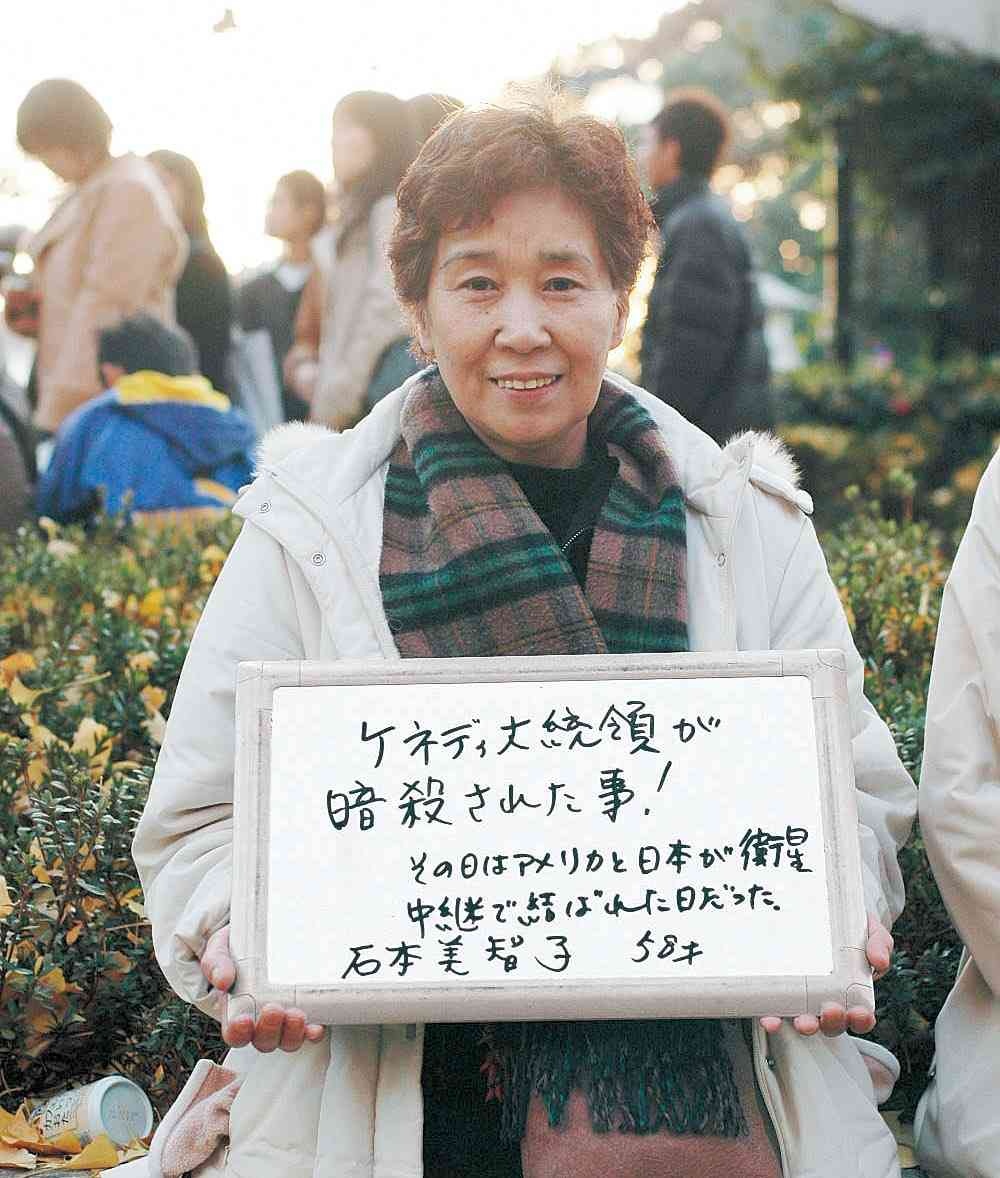 ケネディ大統領が
暗殺された事!
その日はアメリカと日本が衛星
中継で結ばれた日だった。
石本美智子 58才